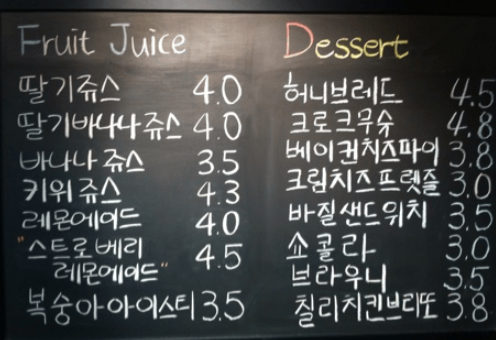 Fruit Juice
딸기쥬스 4.0
딸기바나나쥬스 4.0
바나나쥬스 3.5
키위쥬스 4.3
레몬에이드 4.0
"스트로베리 4.5
레몬에이드"
복숭아아이스티 3.5
Dessert
허니브레드 4.5
크로크무슈 4.8
베이컨치즈파이 3.8
크림치즈프렛즐 3.0
바질샌드위치 3.5
쇼콜라 3.0
브라우니 3.5
칠리치킨브리또 3.8